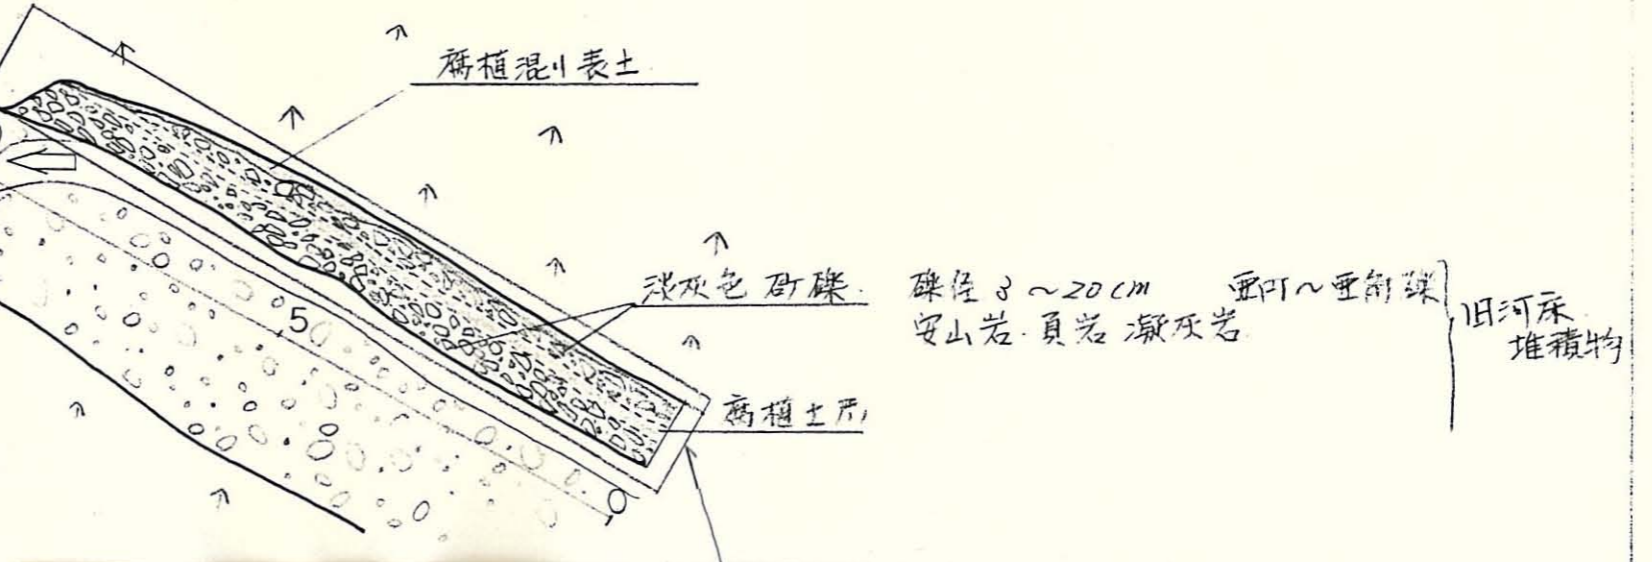 腐植混り表土
淡灰色砂礫 礫径 3~20cm 亜円~亜角礫
安山岩・頁岩 凝灰岩
旧河床
堆積物
腐植土
5
0